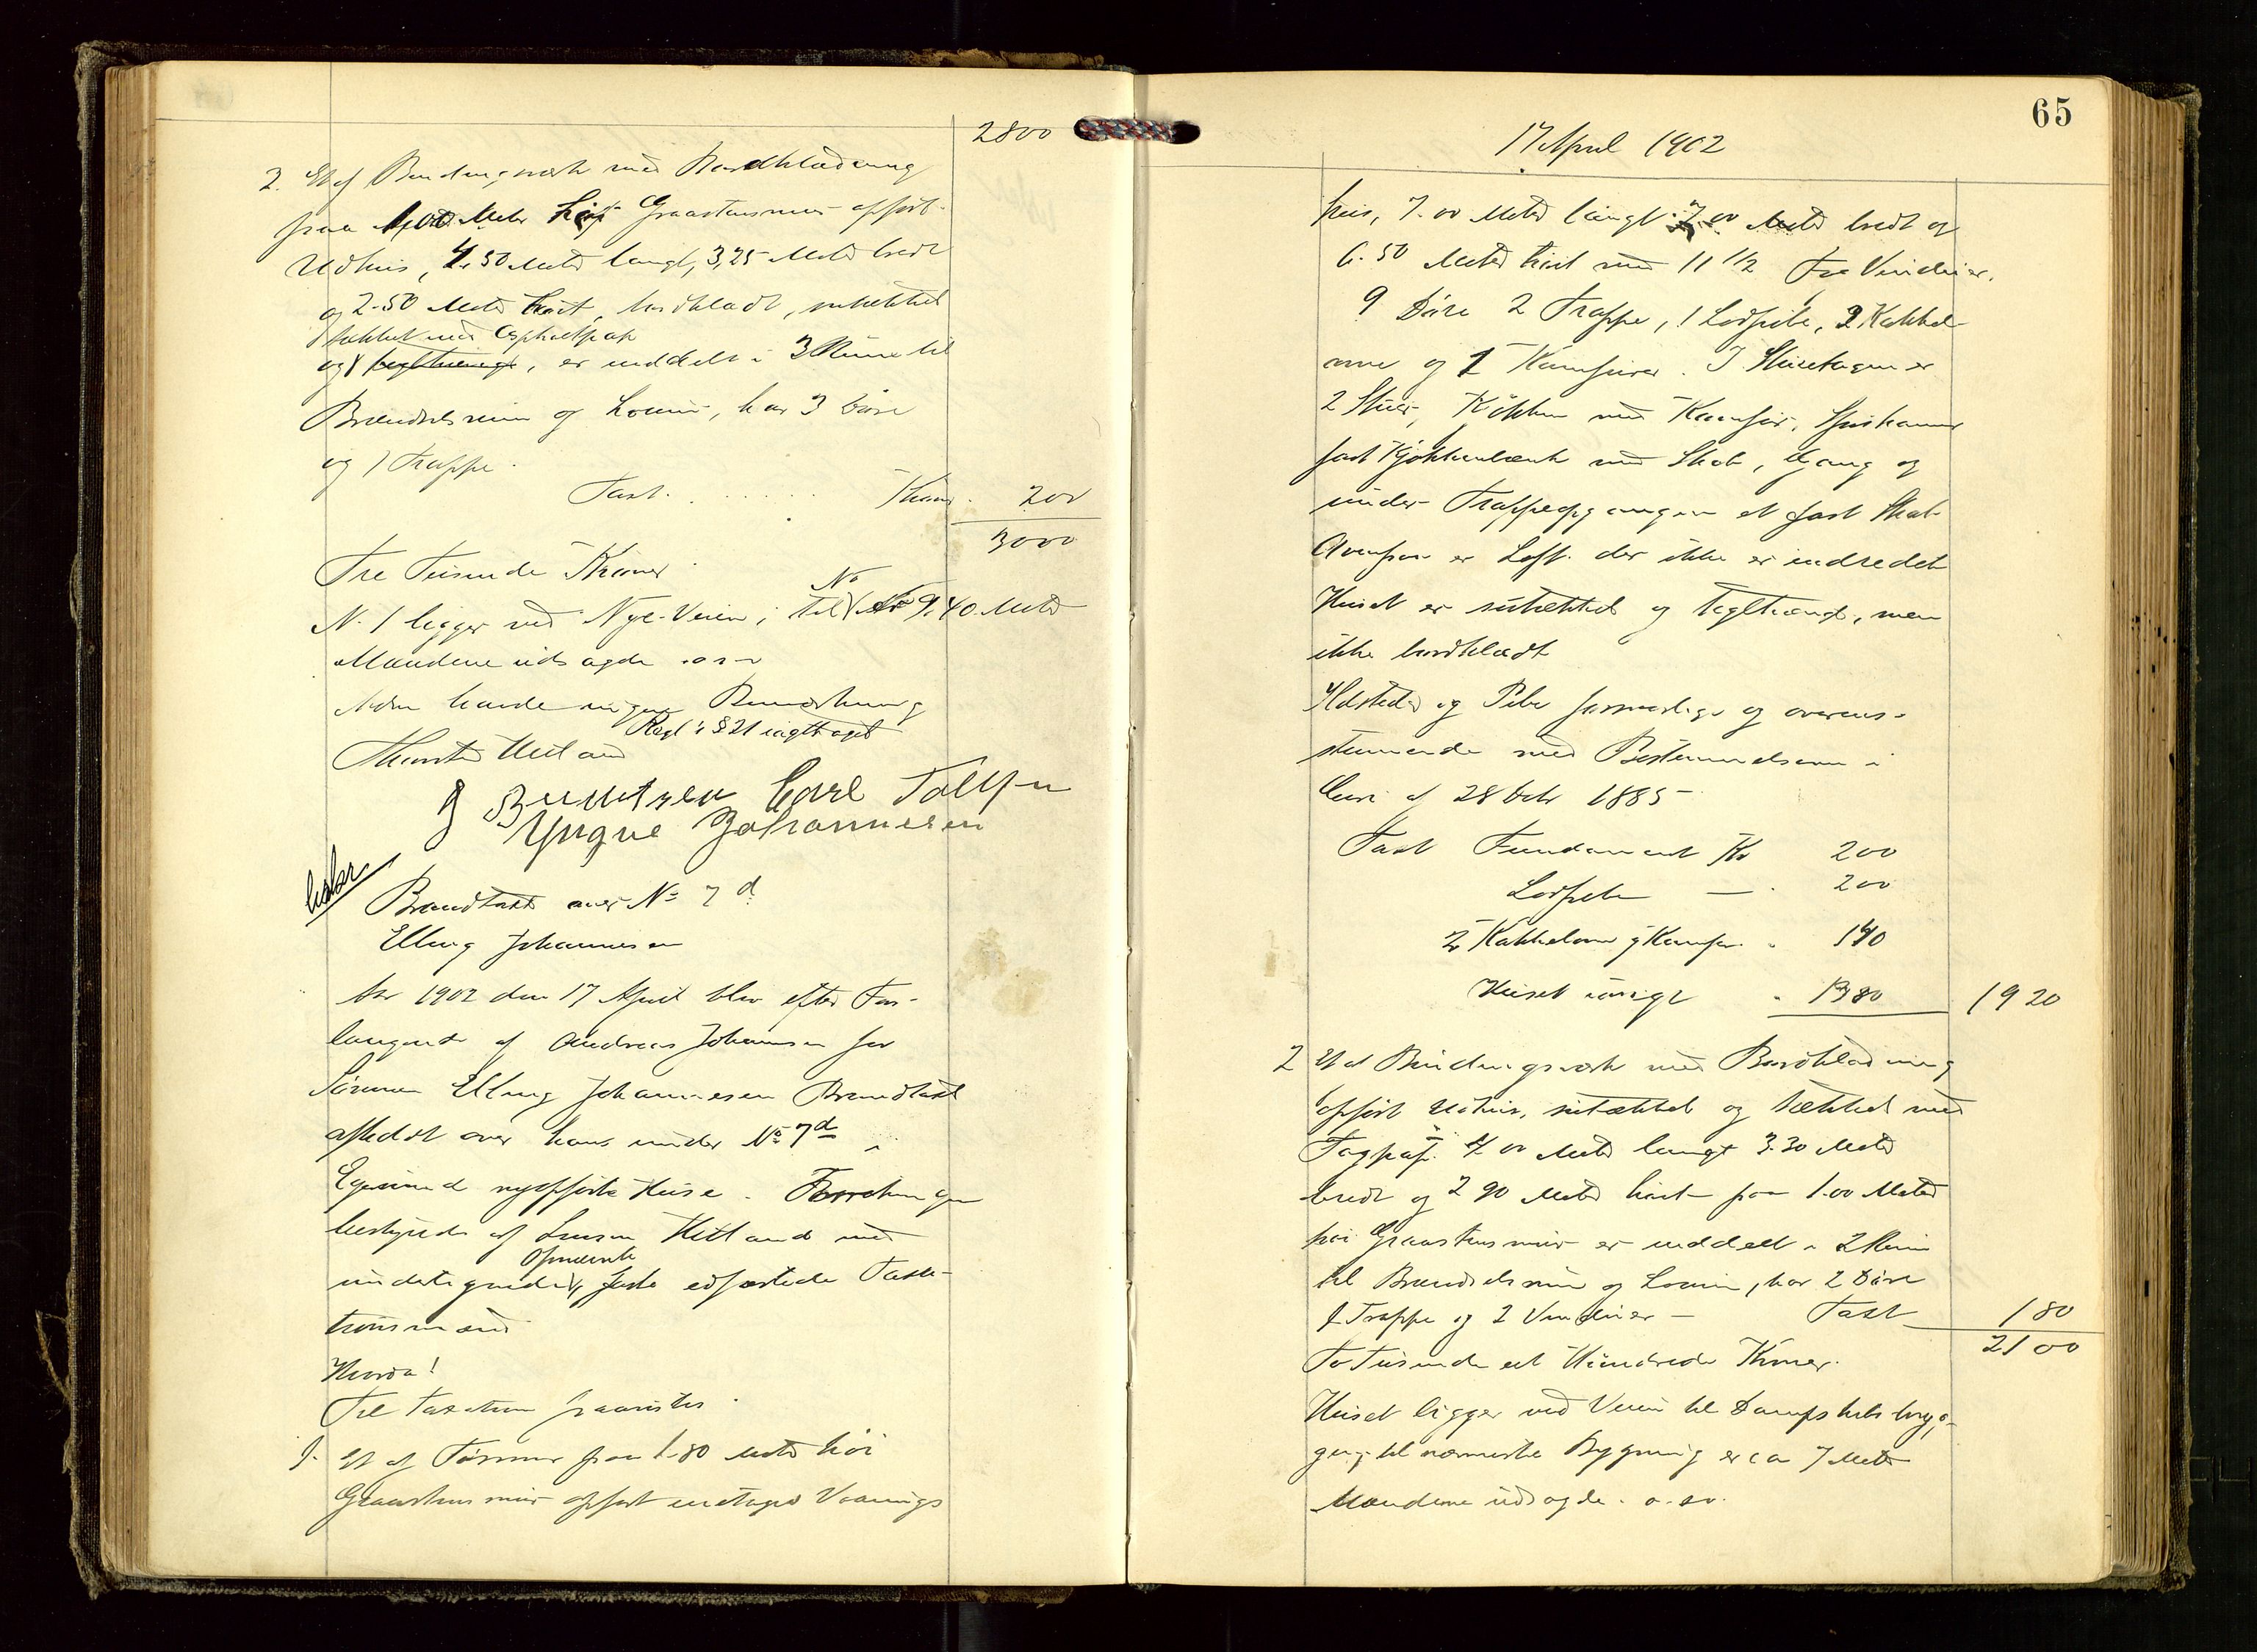 2800
2. Et af Bindingsværk med Bordklædning
paa 1,00 Meter høi Graastensmur opført
Udhus, 4,50 Meter langt, 3,25 Meter bredt
og 2.50 Meter høit, bordklædt, sutækket
tækket med Asphaltpap
og teglhængt, er inddelt i 3 Rum til
Brændselsrum og Lokum, har 3 Døre
og 1 Trappe.
Taxt . . . . . . Kroner 200
3000
Tre Tusinde Kroner
N. 1 ligger ved Nye-Veien; til No 9.40 Meter
Mændene udsagde o.s.v
Adm havde ingen Bemærkning
Regl's § 21 iagttaget
Hetland
J Berentzen Carl Tollefsen
Yngve Johannesen
Brandtaxt over No 7 d
Elling Johannesen
Aar 1902 den 17 April blev efter For-
langende af Andreas Johannesen for
Sønnen Elling Johannesen Brandtaxt
afholdt over hans under No 7d i
Egersund nyopførte Huse. Forretningen
bestyredes af Hetland med
opnævnte
undertegnede faste edfæstede Taxa-
tionsmænd
Hvorda!
Til Taxation paavistes.
1. Et af Tømmer paa 1.80 Meter høi
Graastensmur opført enetages Vaanings
65
17 April 1902
hus, 7.00 Meter langt 7.00 Meter bredt og
6.50 Meter høit med 11 1/2 Fag Vinduer.
9 Døre 2 Trapper, 1 Lodpibe, 2 Kakkel-
ovne og 1 Komfurer. I Stueetagen er
2 Stuer, Kökken med Komfur, Spiskammer
fast Kjøkkenbænk med Skab, Gang og
under Trappeopgangen et fast Skab
Ovenpaa er Loft, der ikke er indredet
Huset er sutækket og teglhængt, men
ikke bordklædt
Ildsteder og Pibe forsvarlige og overens-
stemmende med Bestemmelserne i
af 28 Octr 1885
Taxt Fundament Kr 200
Lodpibe — . 200
2 Kakkelovne & Komfur . 140
Huset øvrigt . 1380 1920
2 Et af Bindingsværk med Bordklædning
opført Udhus, sutækket og tækket med
Tagpap. 4.00 Meter langt 3.30 Meter
bredt og 2 90 Meter høit paa 1.00 Meter
høi Graastensmur er inddelt i 2 Rum
til Brændselsrum og Lokum, har 2 Døre
1 Trappe og 2 Vinduer — Taxt 180
2100
To Tusinde et Hundrede Kroner.
Huset ligger ved Veien til Dampskibsbryg-
gen; til nærmeste Bygning er ca 7 Meter
Mændene udsagde. o.s.v.